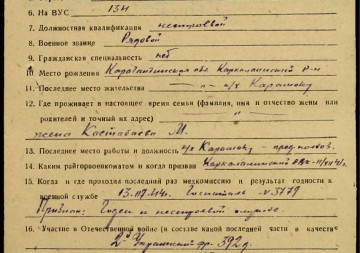 6. На ВУС 134
7. Должностная квалификация нестроевой
8. Военное звание Рядовой
9. Гражданская специальность нет
10 Место рождения Карагандинская обл. Каркалинский р-н
11. Последнее место жительства —„— к/х
12. Где проживает в настоящее время семья (фамилия, имя и отчество жены или
родителей и точный их адрес)
жена М.
13. Последнее место работы и должность к/х
14. Каким райгорвоенкоматом и когда призван Каркалинский РВК
15. Когда и где проходил последний раз медкомиссию и результат годности к
военной службе Госпиталь № 3779
Признан: Годен к нестроевой службе.
16. Участие в Отечественной войне (в составе какой последней части в качестве
2й Украинский фр. 392